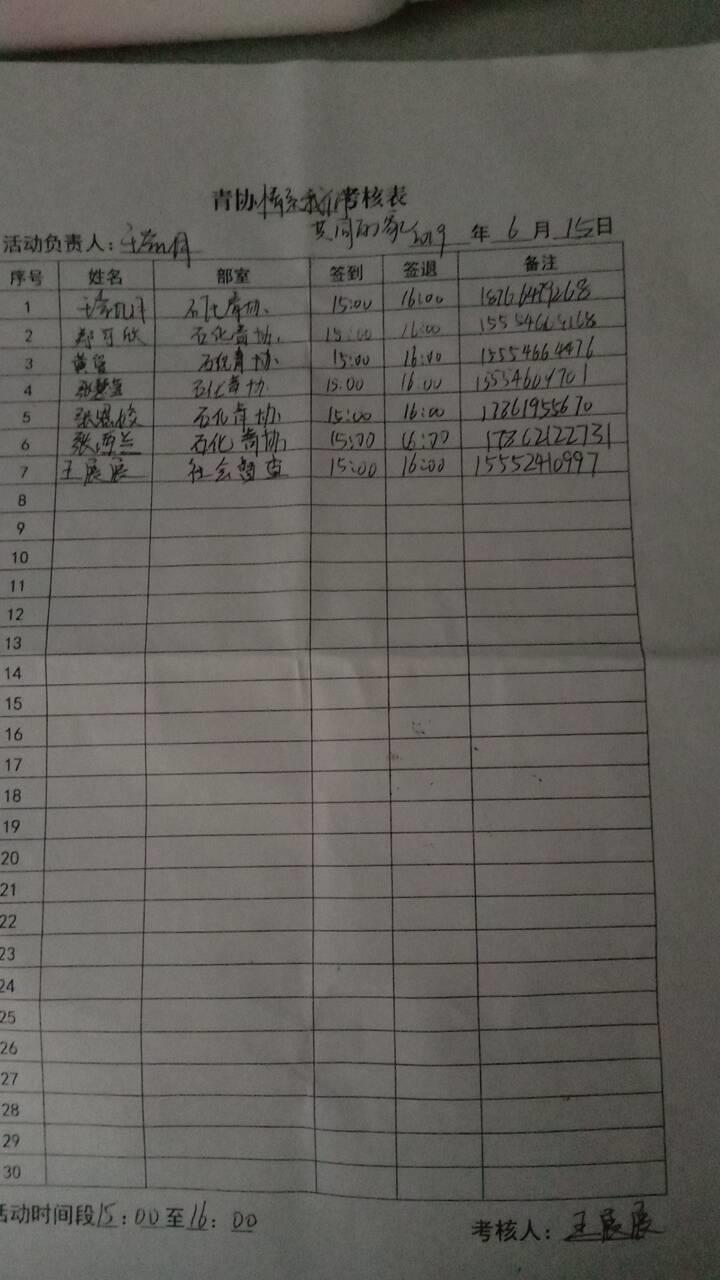 青协 考核表
共同的家 2019 年 6 月 15 日
活动负责人：
序号 姓名 部室 签到 签退 备注
1 石化青协 15:00 16:00
2 郑可欣 石化青协 15:00 16:00
3 石化青协 15:00 16:00 15554664476
4 石化青协 15:00 16:00 15554604701
5 石化青协 15:00 16:00 17861955670
6 石化青协 15:00 16:00 17862122731
7 王展展 社会督查 15:00 16:00 15552410997
8
9
10
11
12
13
14
15
16
17
18
19
20
21
22
23
24
25
26
27
28
29
30
活动时间段15:00至16:00
考核人：王展展